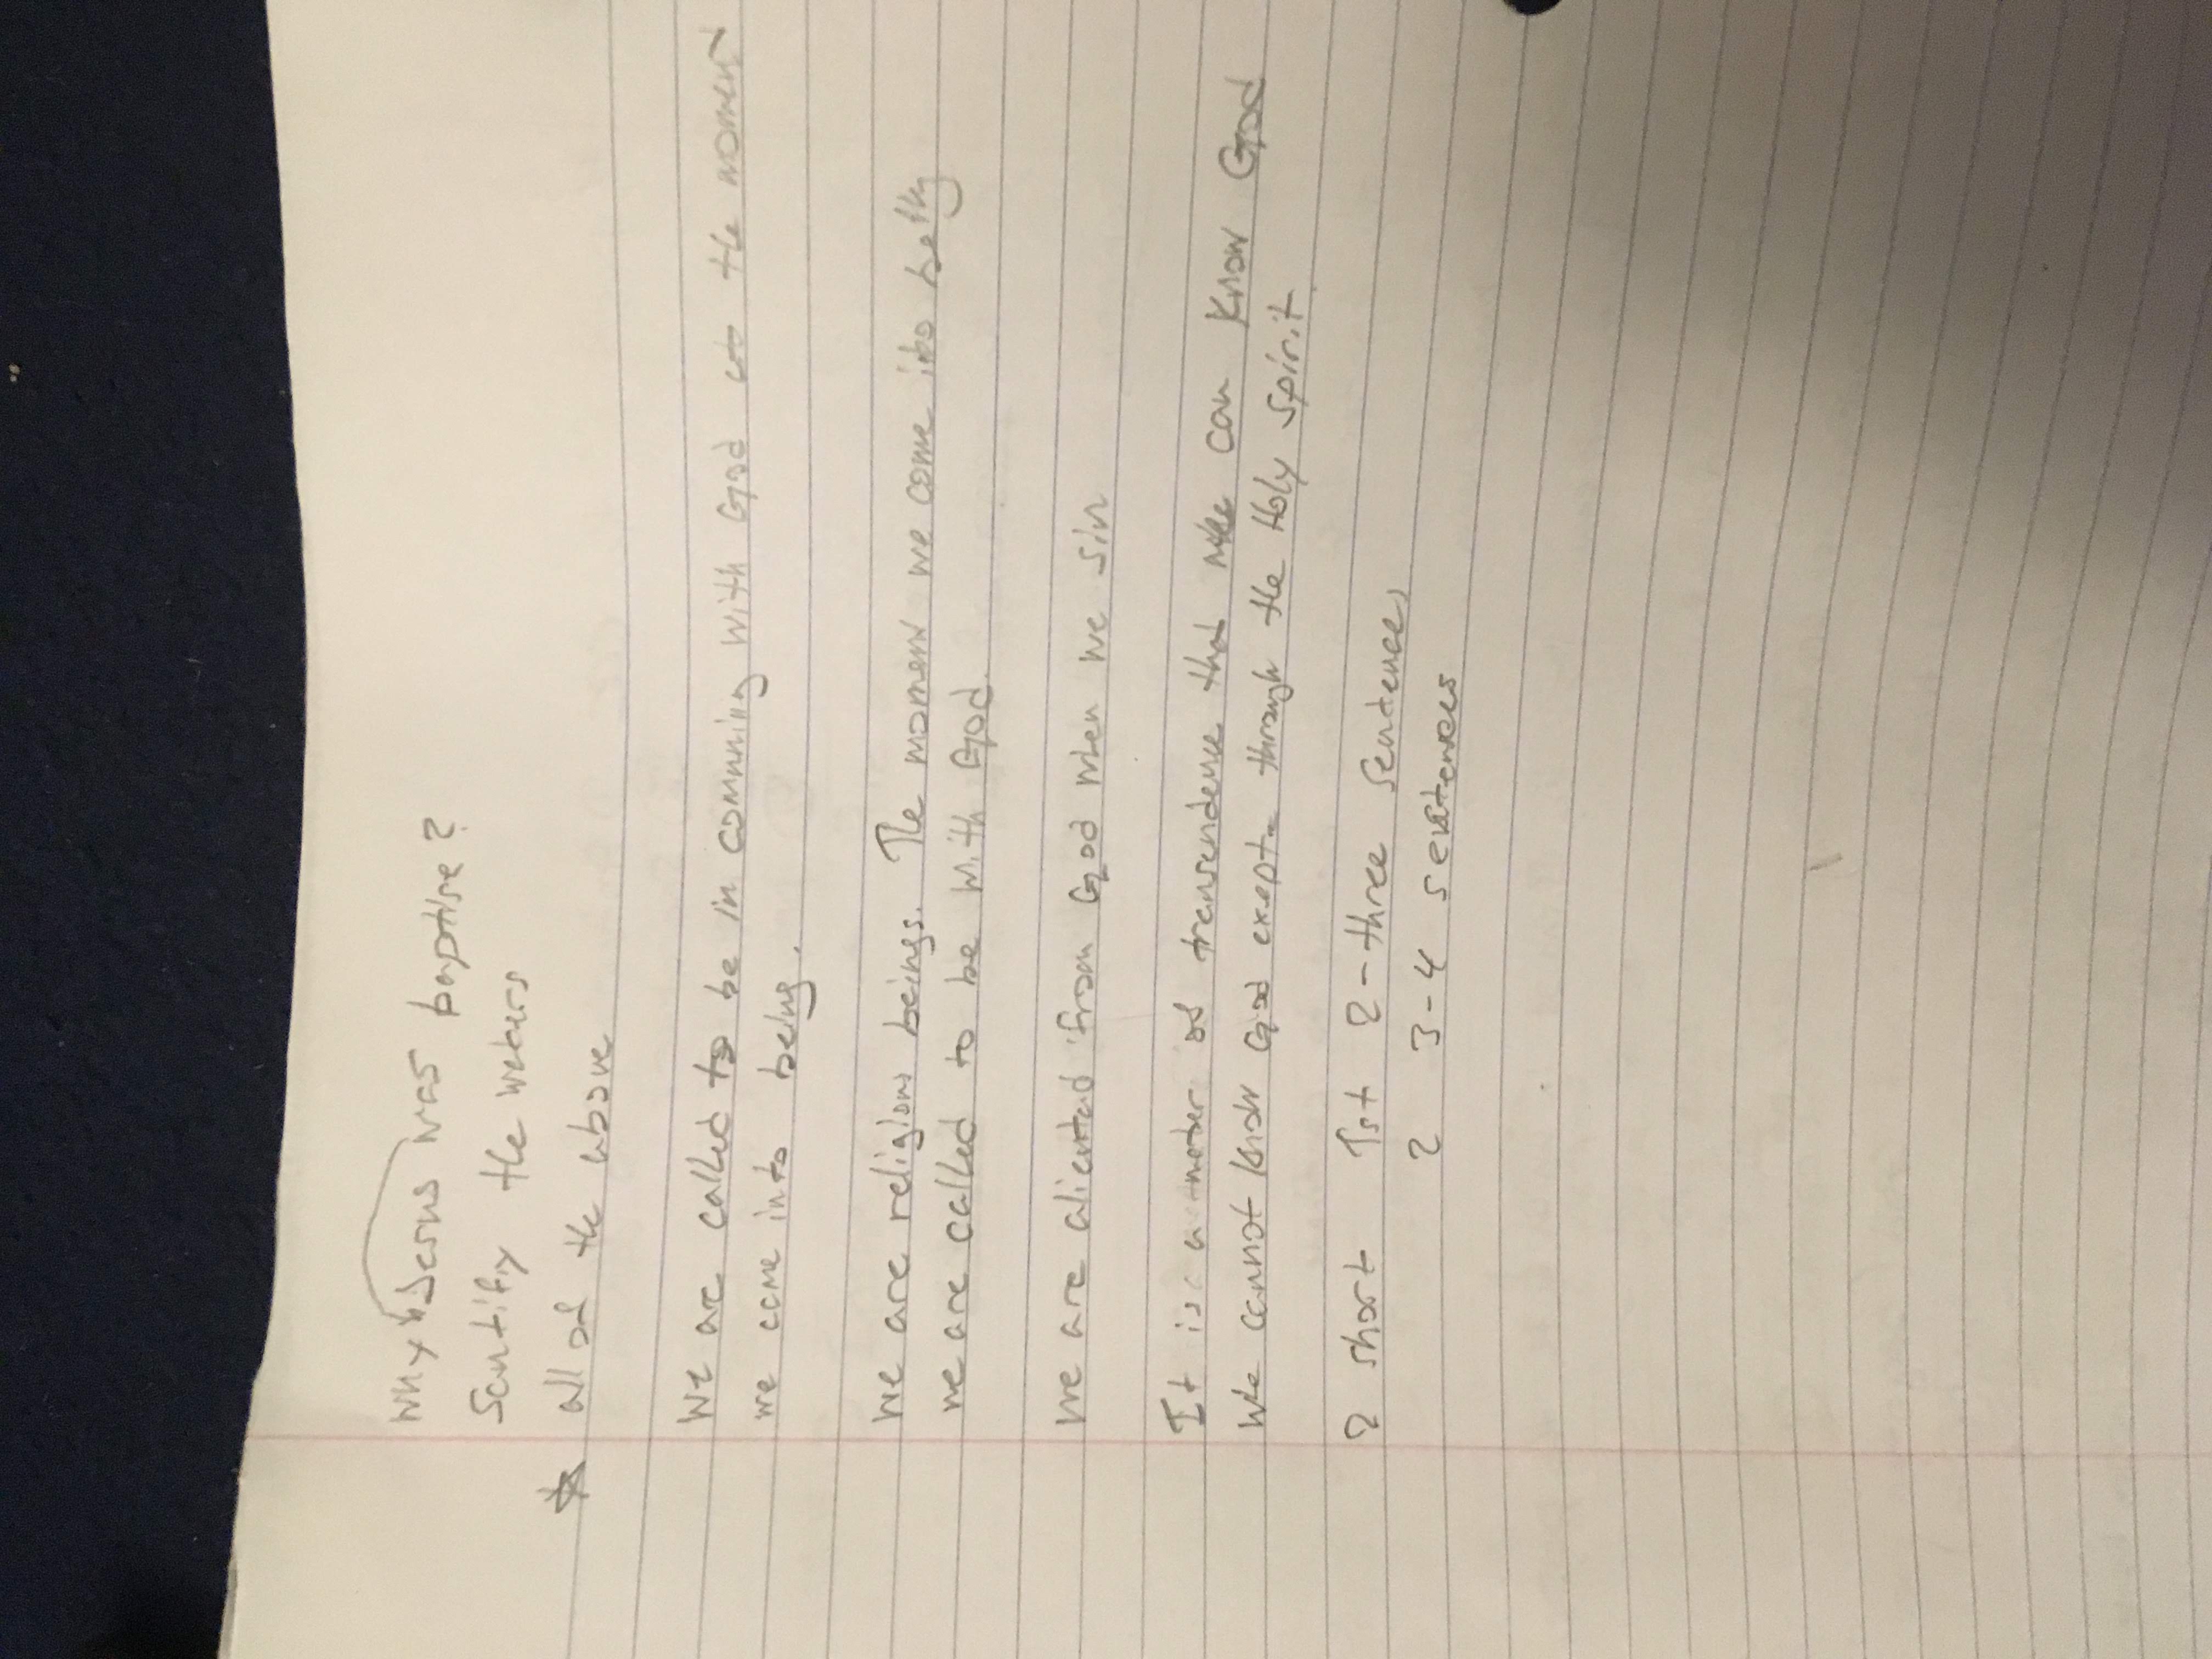 why Jesus was baptise?
Santifiy the waters
all of the above
We are called to be in communing with God at the moment
we come into being.
we are religions beings. The moment we come into being
we are called to be with God.
we are alientad from God when we sin
It is a mater of transendence that we can know God
We cannot know God exept through the Holy Spirit.
2 short 1st 2-three sentences
2 3-4 sentences